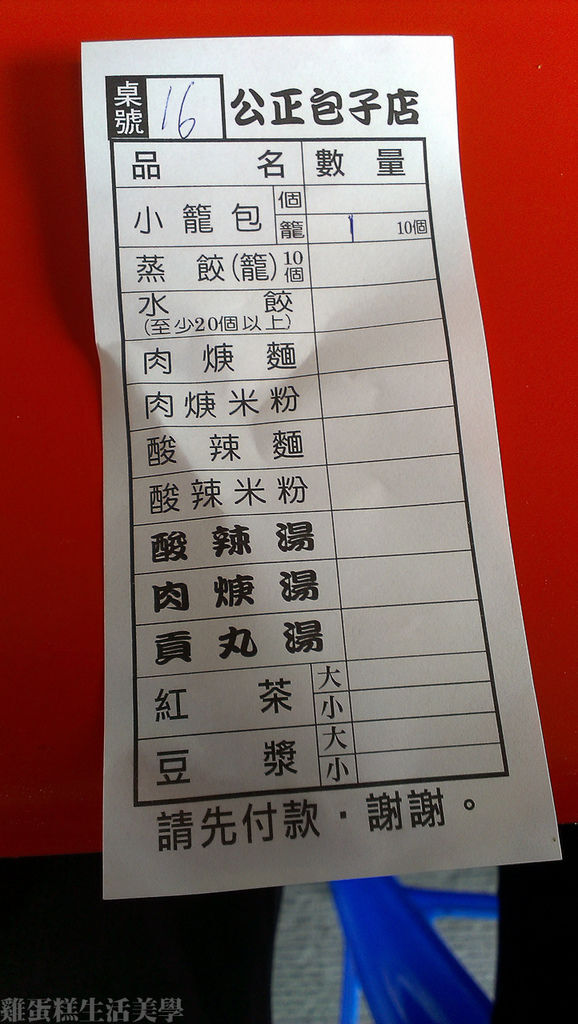 桌號 16 公正包子店
品名 數量
小籠包 個
籠 1 10個
蒸餃(籠)10個
水餃
(至少20個以上)
肉焿麵
肉焿米粉
酸辣麵
酸辣米粉
酸辣湯
肉焿湯
貢丸湯
紅茶 大
小
豆漿 大
小
請先付款．謝謝。
雞蛋糕生活美學